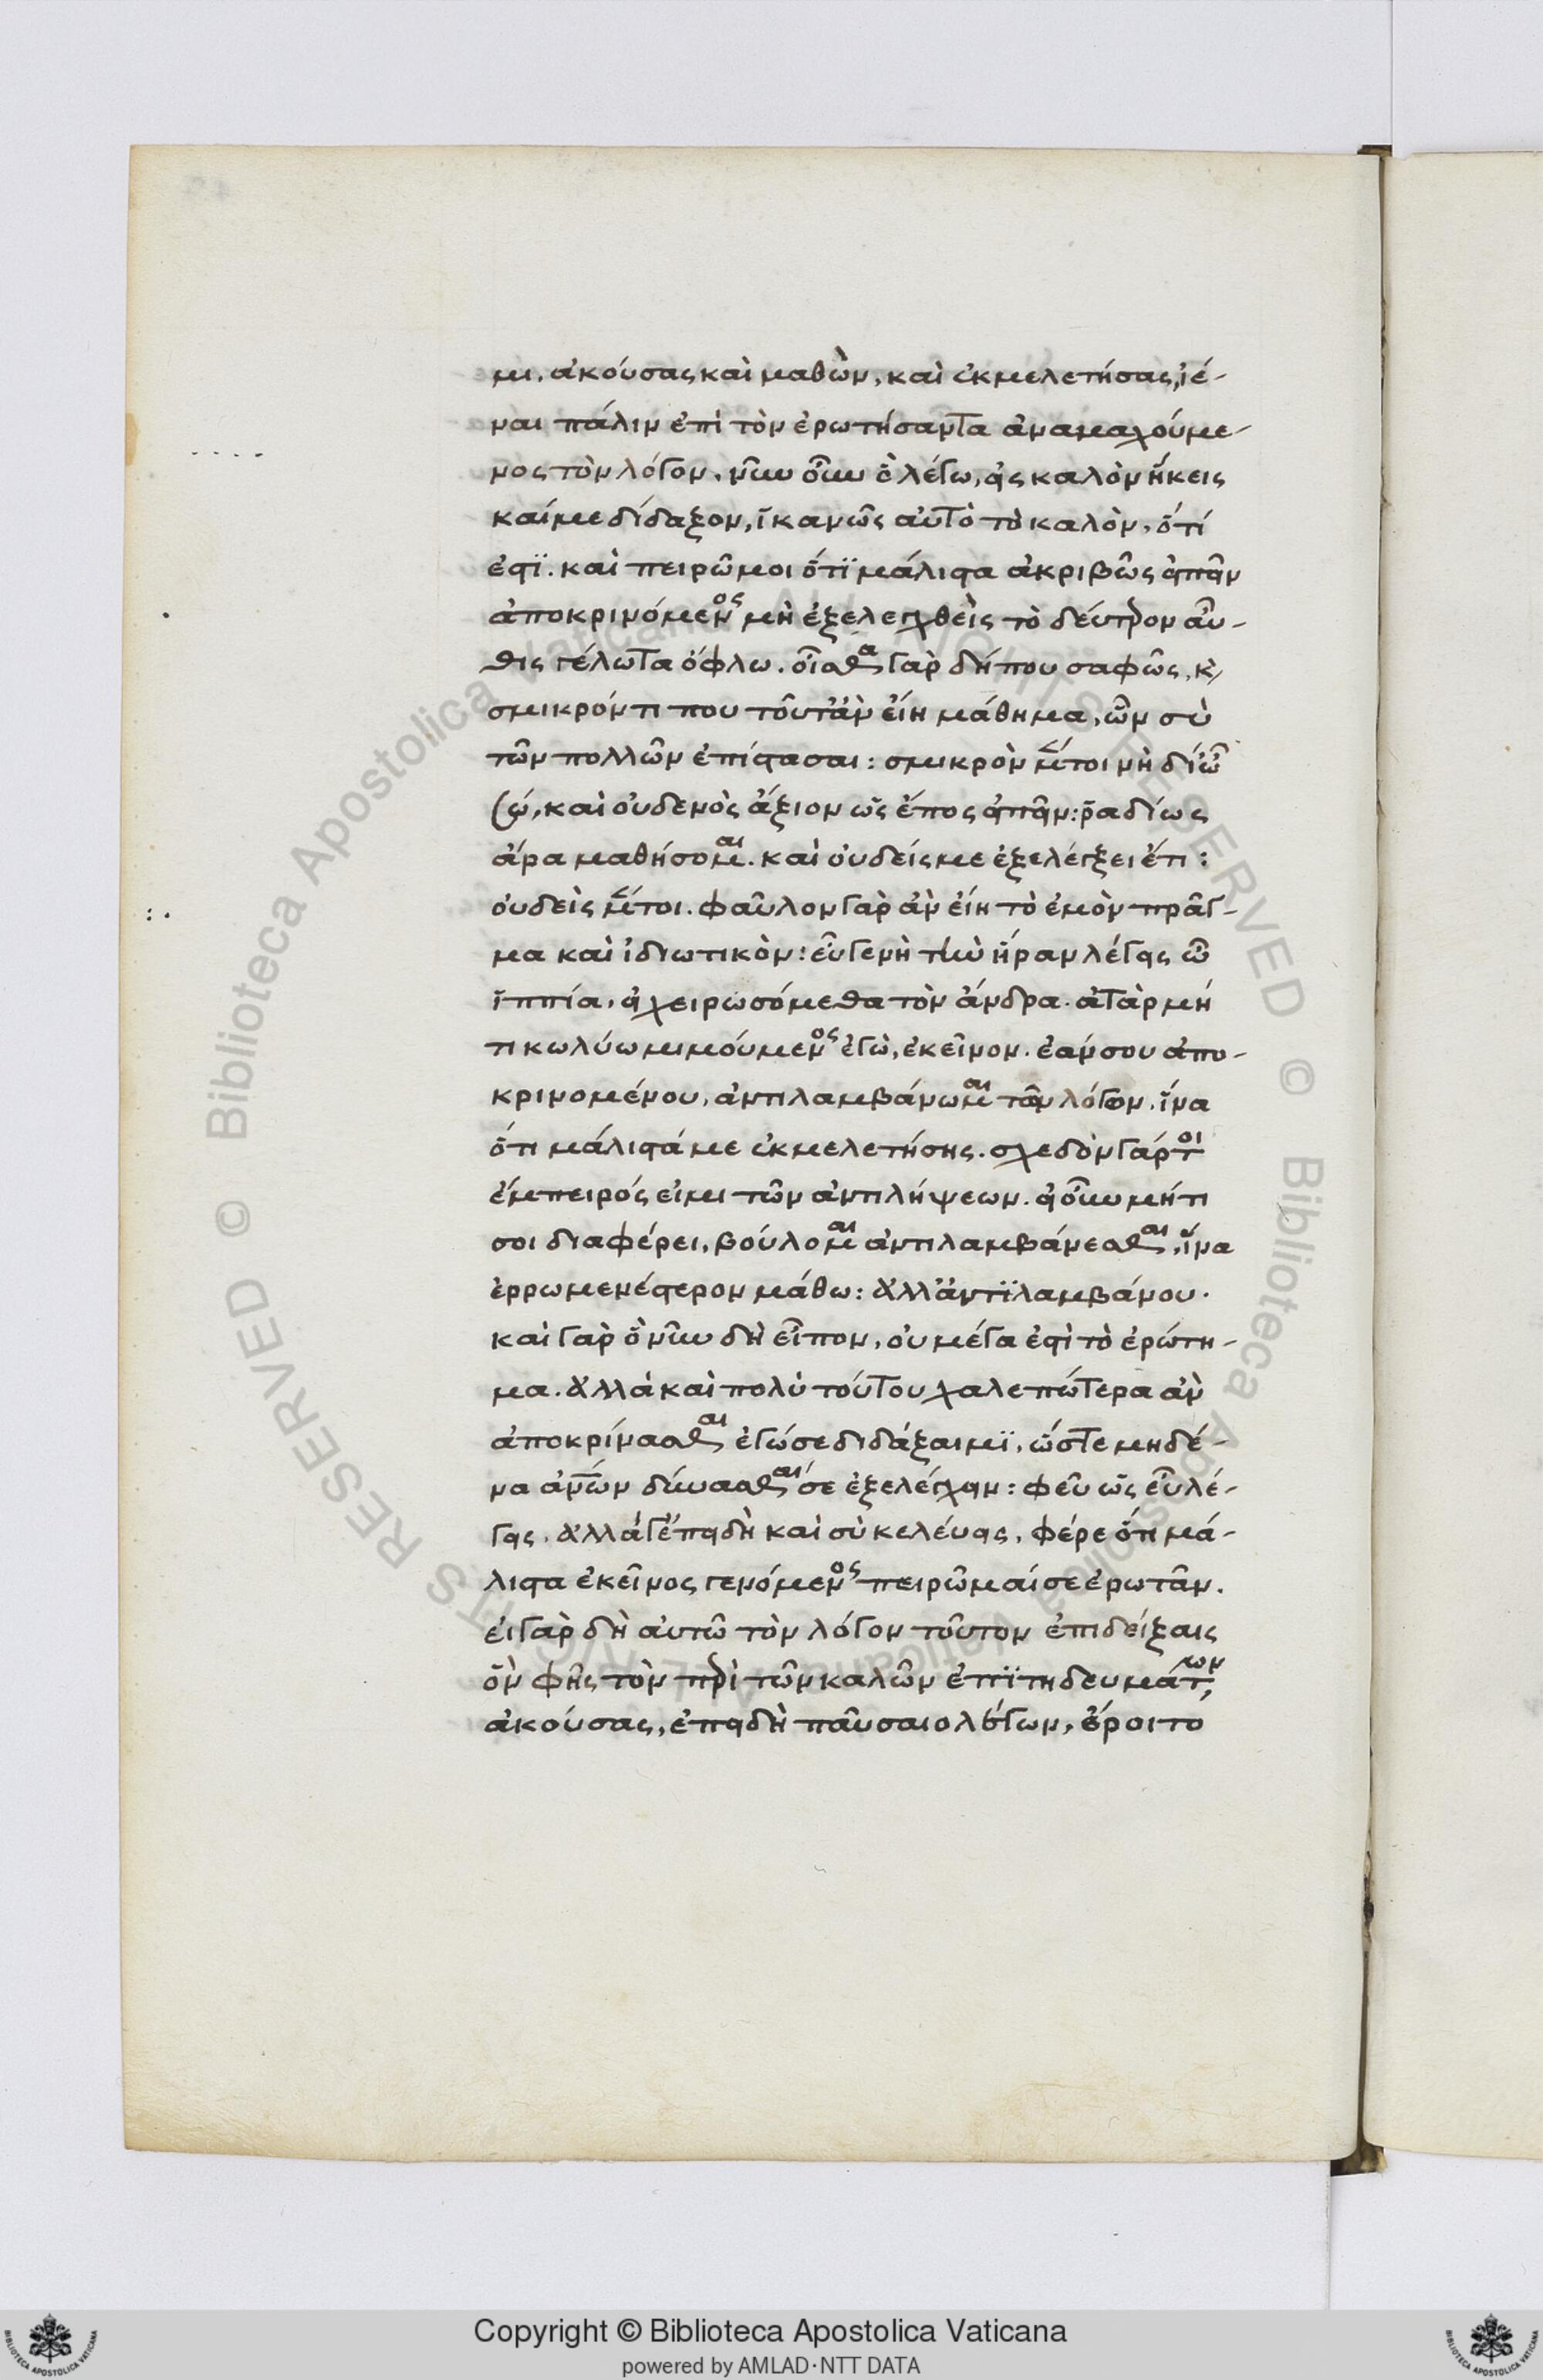 μι. ἀκούσας καὶ μαθὼν, καὶ ἐκμελετήσας, ἰέ-
ναι πάλιν ἐπὶ τὸν ἐρωτήσαντα ἀναμαχούμε-
νος τὸν λόγον. νῦν οὖν ὃ λέγω, εἰς καλὸν ἥκεις
καί με δίδαξον, ἱκανῶς αὐτὸ τὸ καλὸν, ὅτί
ἐστϊ. καὶ πειρῶ μοι ὅτϊ μάλιστα ἀκριβῶς εἰπεῖν
ἀποκρινόμενος μὴ ἐξελεγχθεὶς τὸ δεύτερον αὖ-
θις γέλωτα ὄφλω. οἶσθα γὰρ δήπου σαφῶς, κ̀
σμικρόν τι που τοῦτ' ἂν εἴη μάθημα, ὧν σὺ
τῶν πολλῶν ἐπίστασαι: σμικρὸν μέντοι νὴ δί' ὦ
σώ, καὶ οὐδενὸς ἄξιον ὡς ἔπος εἰπεῖν: ῥαδίως
ἄρα μαθήσομαι. καὶ οὐδείς με ἐξελέγξει ἔτι:
οὐδεὶς μέντοι. φαῦλον γὰρ ἂν εἴη τὸ ἐμὸν πρᾶγ-
μα καὶ ἰδιωτικὸν: εὖ γε νὴ τὴν ἥραν λέγεις ὦ
ἱππία. εἰ χειρωσόμεθα τὸν ἄνδρα. ἀτὰρ μή
τι κωλύω μιμούμενος ἐγὼ, ἐκεῖνον. ἐάν σου ἀπο-
κρινομένου, ἀντιλαμβάνωμαι τῶν λόγων. ἵνα
ὅτι μάλιστά με ἐκμελετήσης. σχεδὸν γάρ τοι
ἔμπειρός εἰμι τῶν ἀντιλήψεων. εἰ οὖν μήτι
σοι διαφέρει, βούλομαι ἀντιλαμβάνεσθαι, ἵνα
ἐρρωμενέστερον μάθω: ἀλλ' ἀντϊλαμβάνου.
καὶ γὰρ ὃ νῦν δὴ εἶπον, οὐ μέγα ἐστὶ τὸ ἐρώτη-
μα. ἀλλὰ καὶ πολὺ τούτου χαλεπώτερα ἂν
ἀποκρίνασθαι ἐγώ σε διδάξαιμϊ, ὥστε μηδέ-
να ἀνθρώπων δύνασθαι σε ἐξελέγχειν: φεῦ ὡς εὖ λέ-
γεις. ἀλλά γ' ἐπειδὴ καὶ σὺ κελεύεις, φέρε ὅτι μά-
λιστα ἐκεῖνος γενόμενος πειρῶμαί σε ἐρωτᾶν.
εἰ γὰρ δὴ αὐτῶ τὸν λόγον τοῦτον ἐπιδείξαις
ὃν φῆς τὸν περὶ τῶν καλῶν ἐπϊτηδευμάτων,
ἀκούσας, ἐπειδὴ παύσαιο λέγων, ἔροιτο
Copyright © Biblioteca Apostolica Vaticana
powered by AMLAD·NTT DATA